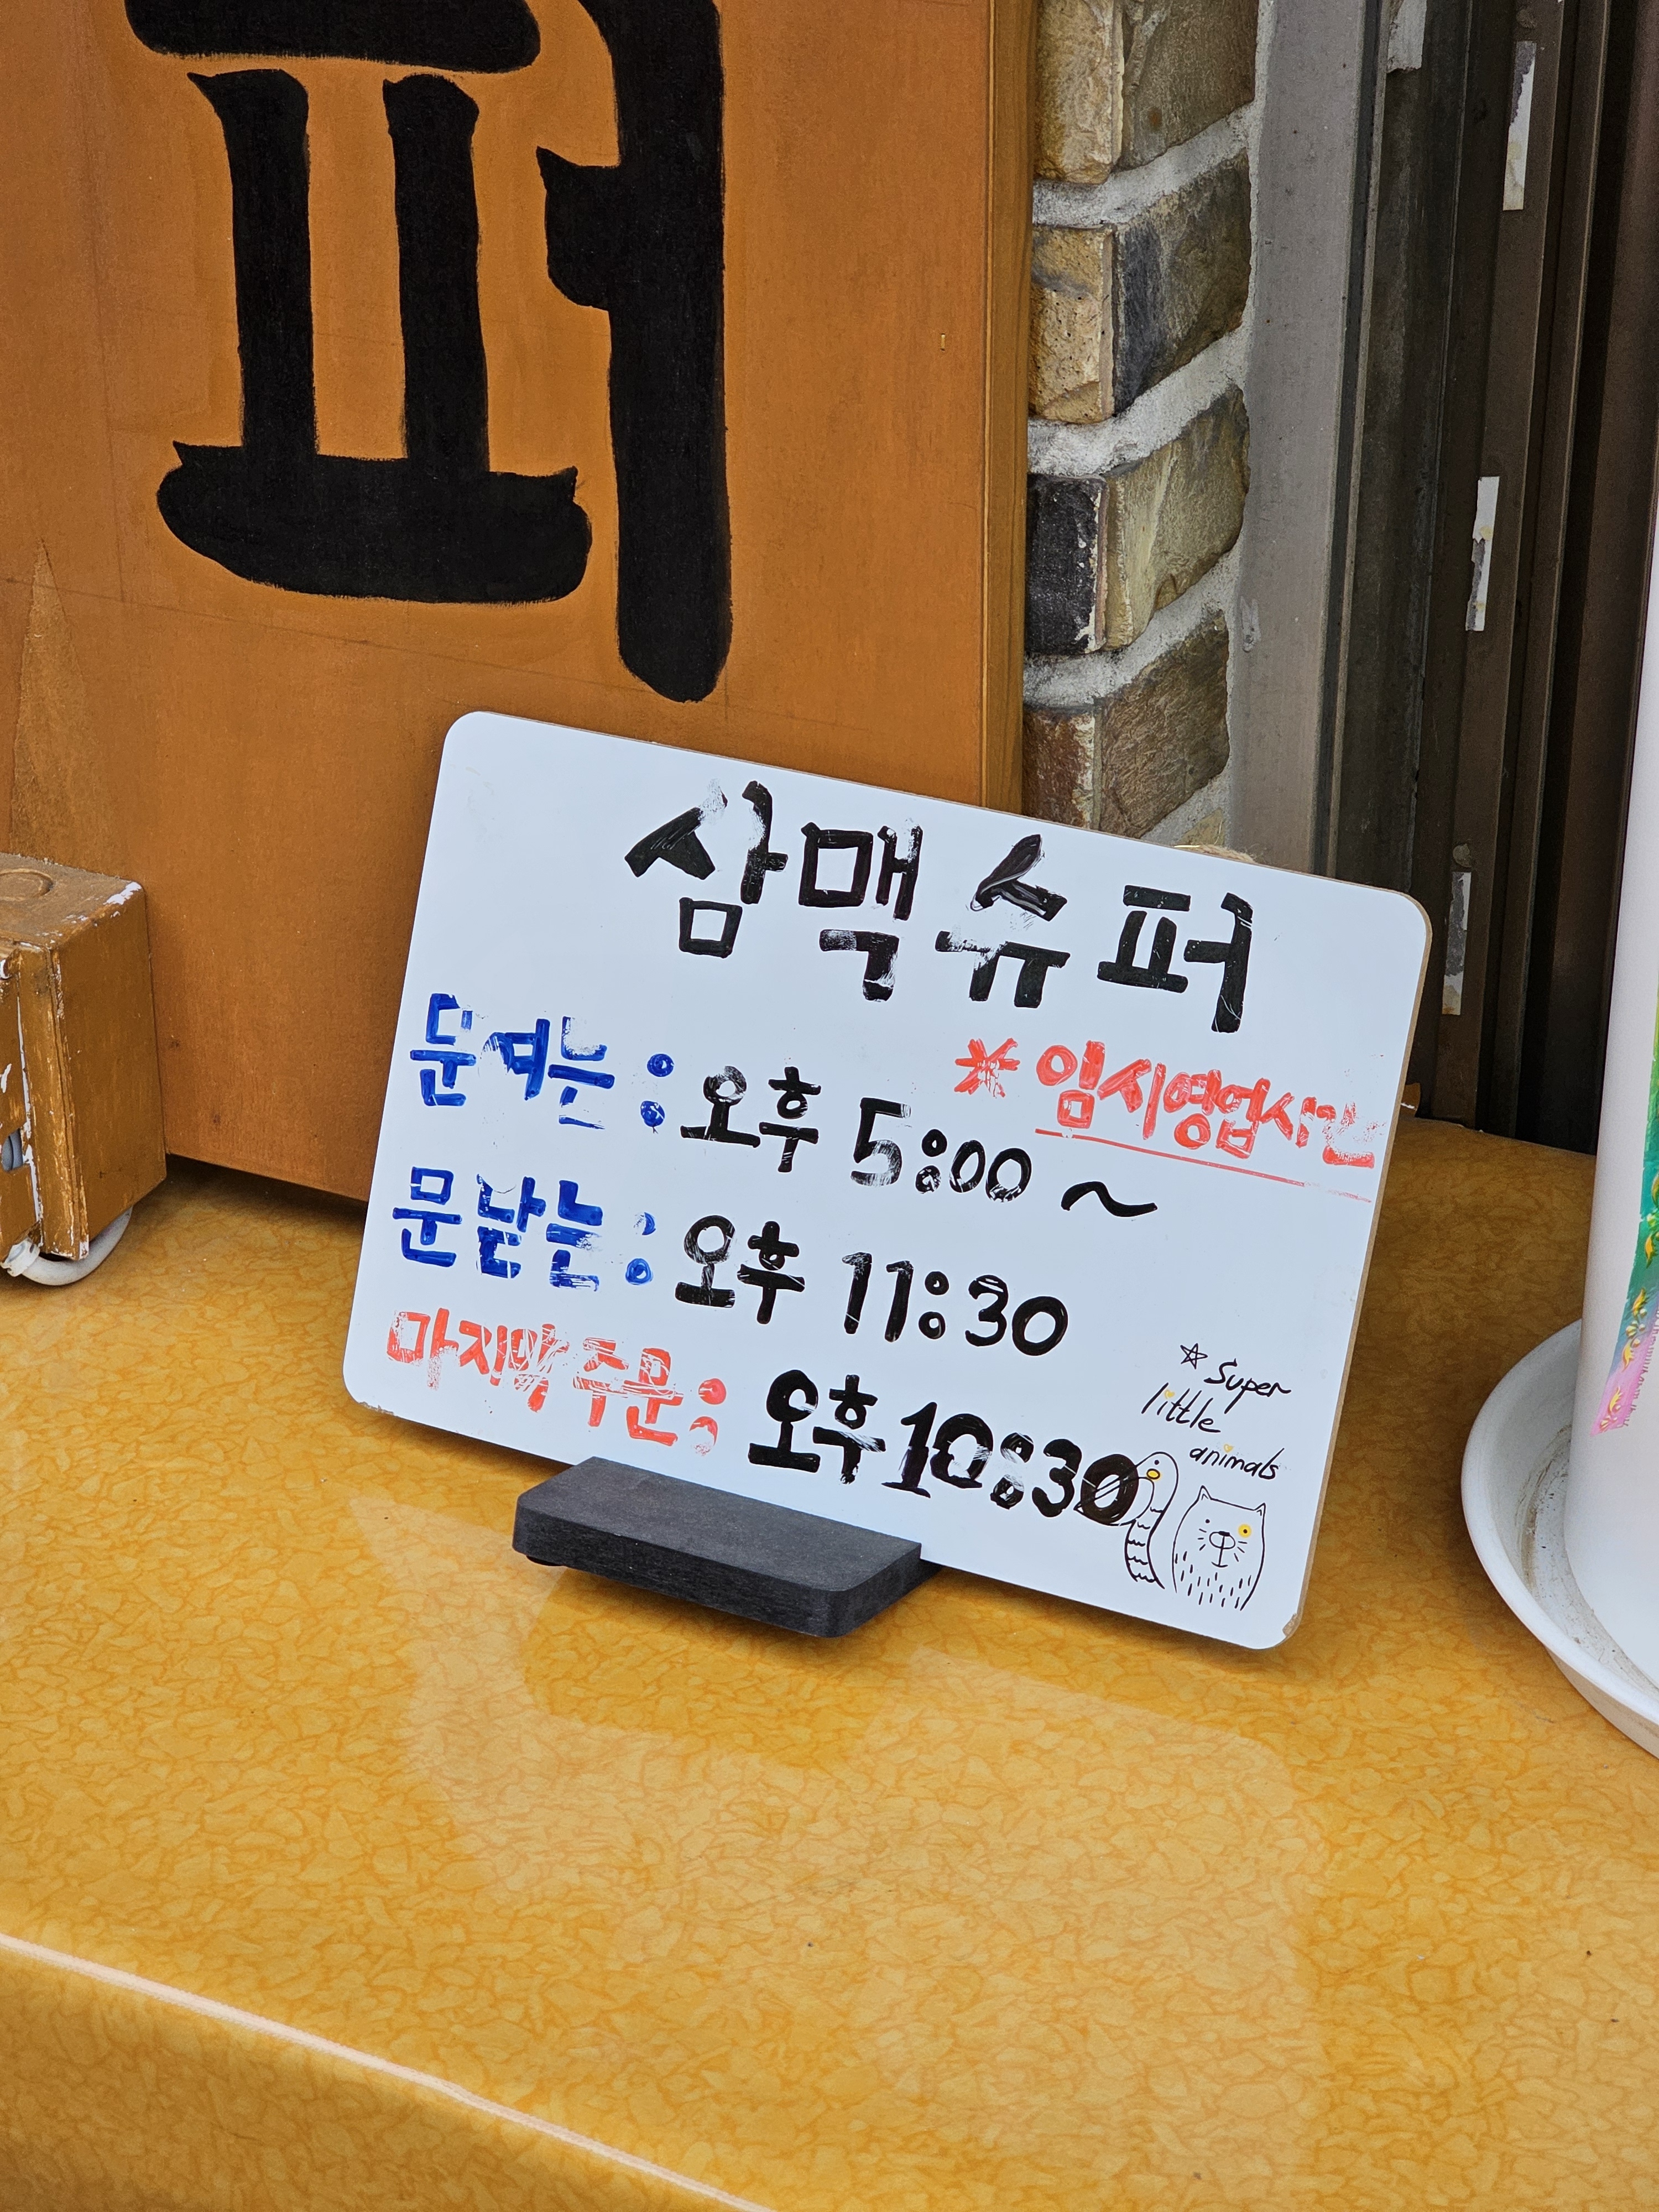 퍼
삼맥슈퍼
*임시영업시간
문여는 : 오후 5:00 ~
문닫는 : 오후 11:30
마지막 주문 : 오후 10:30
☆ Super
little
animals